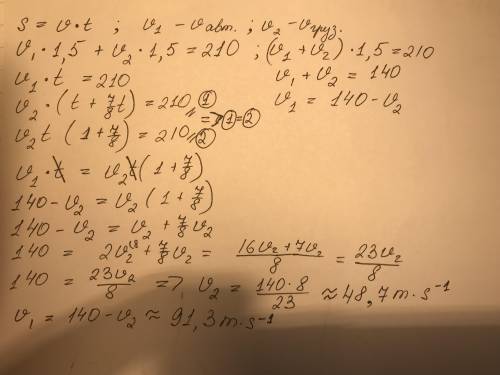 S = v·t ; v₁ – v авт. ; v₂ – v груз.
v₁·1,5 + v₂·1,5 = 210 ; (v₁ + v₂)·1,5 = 210
v₁·t = 210
v₁ + v₂ = 140
v₂·(t + 7/8 t) = 210 ①
v₁ = 140 – v₂
=> ① = ②
v₂t (1 + 7/8) = 210 ②
v₁·t = v₂t (1 + 7/8)
140 – v₂ = v₂ (1 + 7/8)
140 – v₂ = v₂ + 7/8 v₂
140 = 2v₂ + 7/8 v₂ = (16v₂ + 7v₂)/8 = 23v₂/8
140 = 23v₂/8 => v₂ = (140·8)/23 ≈ 48,7 m·s⁻¹
v₁ = 140 – v₂ ≈ 91,3 m·s⁻¹